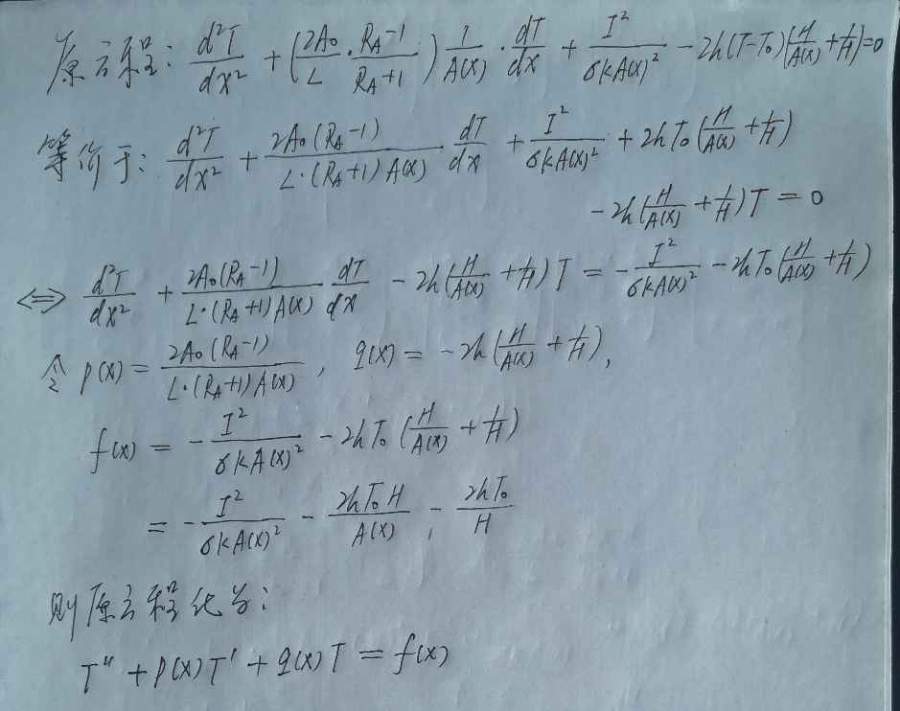 原方程: d²T/dx² + (2A₀/L · (R_A-1)/(R_A+1)) 1/A(x) · dT/dx + I²/(σkA(x)²) - 2h(T-T₀)(H/A(x) + 1/H)=0
等价于: d²T/dx² + 2A₀(R_A-1)/(L·(R_A+1)A(x)) · dT/dx + I²/(σkA(x)²) + 2hT₀(H/A(x) + 1/H)
-2h(H/A(x) + 1/H)T = 0
⟺ d²T/dx² + 2A₀(R_A-1)/(L·(R_A+1)A(x)) dT/dx - 2h(H/A(x) + 1/H)T = - I²/(σkA(x)²) - 2hT₀(H/A(x) + 1/H)
令 p(x) = 2A₀(R_A-1)/(L·(R_A+1)A(x)), q(x) = -2h(H/A(x) + 1/H),
f(x) = - I²/(σkA(x)²) - 2hT₀(H/A(x) + 1/H)
= - I²/(σkA(x)²) - 2hT₀H/A(x) - 2hT₀/H
则原方程化为:
T" + p(x)T' + q(x)T = f(x)